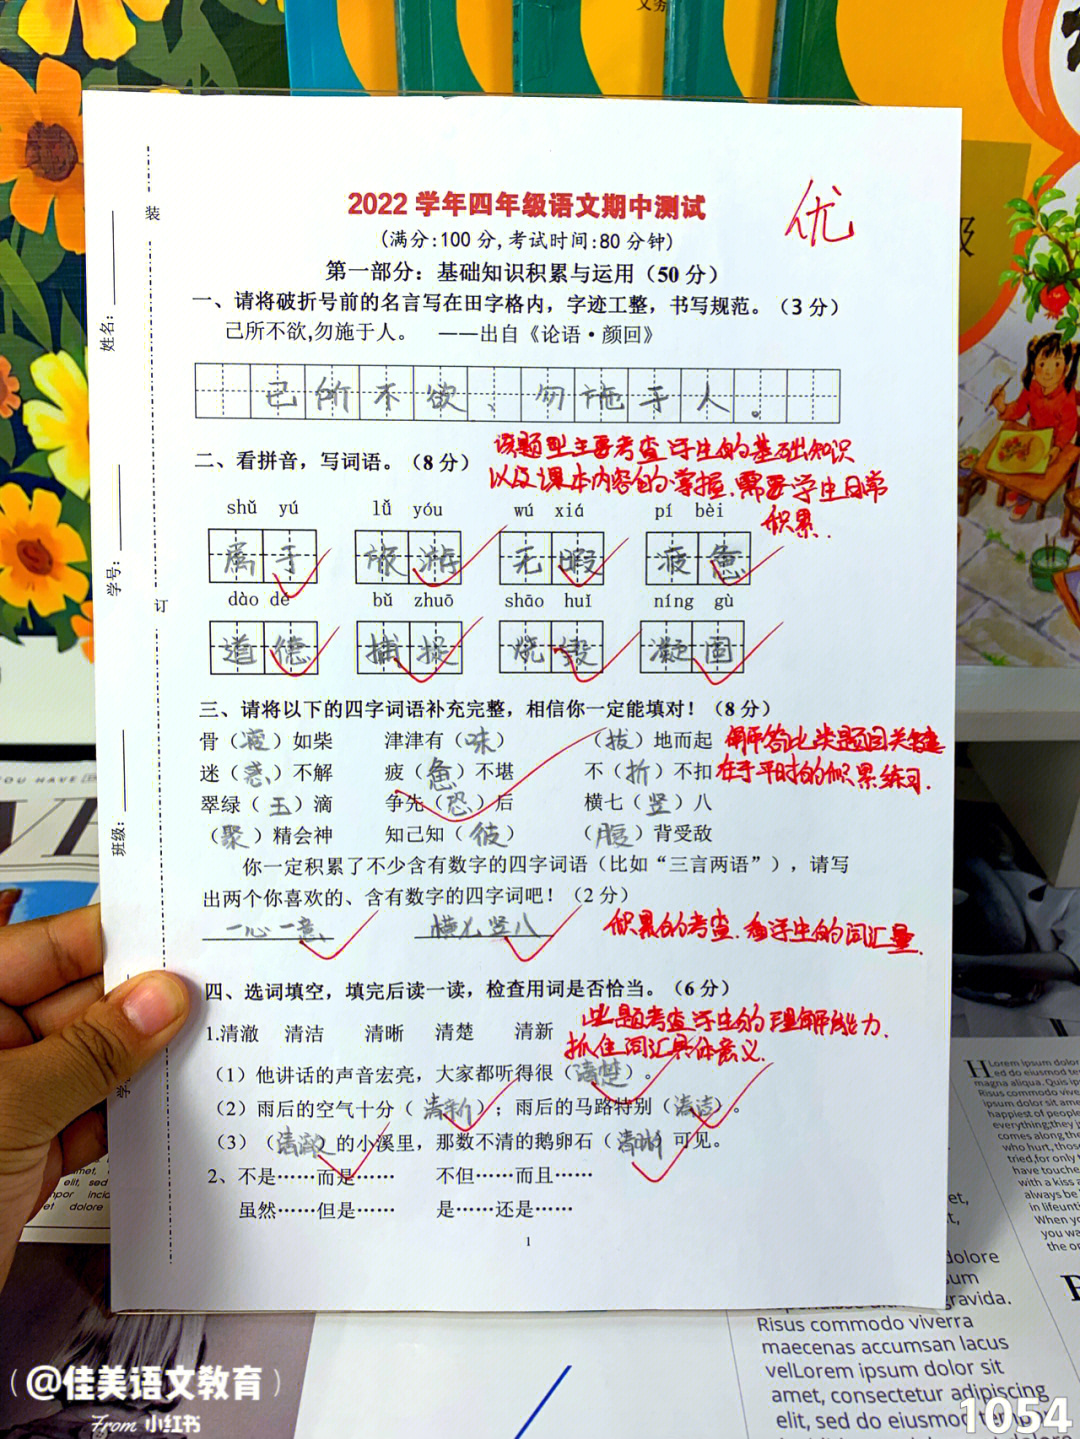 2022 学年四年级语文期中测试
优
(满分:100 分,考试时间:80 分钟)
第一部分：基础知识积累与运用（50 分）
一、请将破折号前的名言写在田字格内，字迹工整，书写规范。（3 分）
己所不欲,勿施于人。 ——出自《论语·颜回》
己所不欲、勿施于人。
二、看拼音，写词语。（8 分）
该题型主要考查学生的基础知识
以及课本内容的掌握.需要学生日常
积累.
shǔ yú lǚ yóu wú xiá pí bèi
属于 旅游 无暇 疲惫
dào dé bǔ zhuō shāo huǐ níng gù
道德 捕捉 烧毁 凝固
三、请将以下的四字词语补充完整，相信你一定能填对！（8 分）
骨（瘦）如柴 津津有（味） （拔）地而起
解答此类题目关键
迷（惑）不解 疲（惫）不堪 不（折）不扣
在于平时的积累练习.
翠绿（玉）滴 争先（恐）后 横七（竖）八
（聚）精会神 知己知（彼） （腹）背受敌
你一定积累了不少含有数字的四字词语（比如“三言两语”），请写
出两个你喜欢的、含有数字的四字词吧！（2 分）
一心一意 横七竖八
积累的考查.看学生的词汇量.
四、选词填空，填完后读一读，检查用词是否恰当。（6 分）
1.清澈 清洁 清晰 清楚 清新
此题考查学生的理解能力.
抓住词汇具体意义.
（1）他讲话的声音宏亮，大家都听得很（清楚）。
（2）雨后的空气十分（清新）；雨后的马路特别（清洁）。
（3）（清澈）的小溪里，那数不清的鹅卵石（清晰）可见。
2、不是……而是…… 不但……而且……
虽然……但是…… 是……还是……
1
装
订
姓名：
学号：
班级：
(@佳美语文教育)
From 小红书
1054
Risus commodo viverra
maecenas accumsan lacus
velLorem ipsum dolor sit
amet, consectetur adipiscing